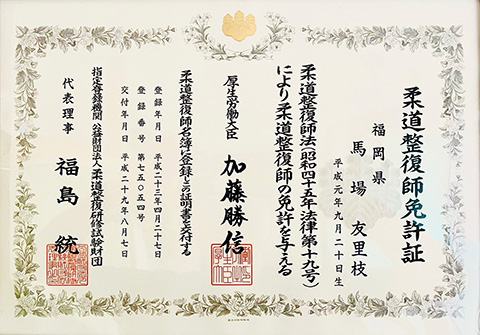 柔道整復師免許証
福岡県
馬場友里枝
平成元年九月二十日生
柔道整復師法(昭和四十五年法律第十九号)
により柔道整復師の免許を与える
厚生労働大臣 加藤勝信
柔道整復師名簿に登録しこの証明書を交付する
登録年月日 平成二十三年四月二十七日
登録番号 第七五〇五四号
交付年月日 平成二十九年八月七日
指定登録機関 公益財団法人柔道整復研修試験財団
代表理事 福島統